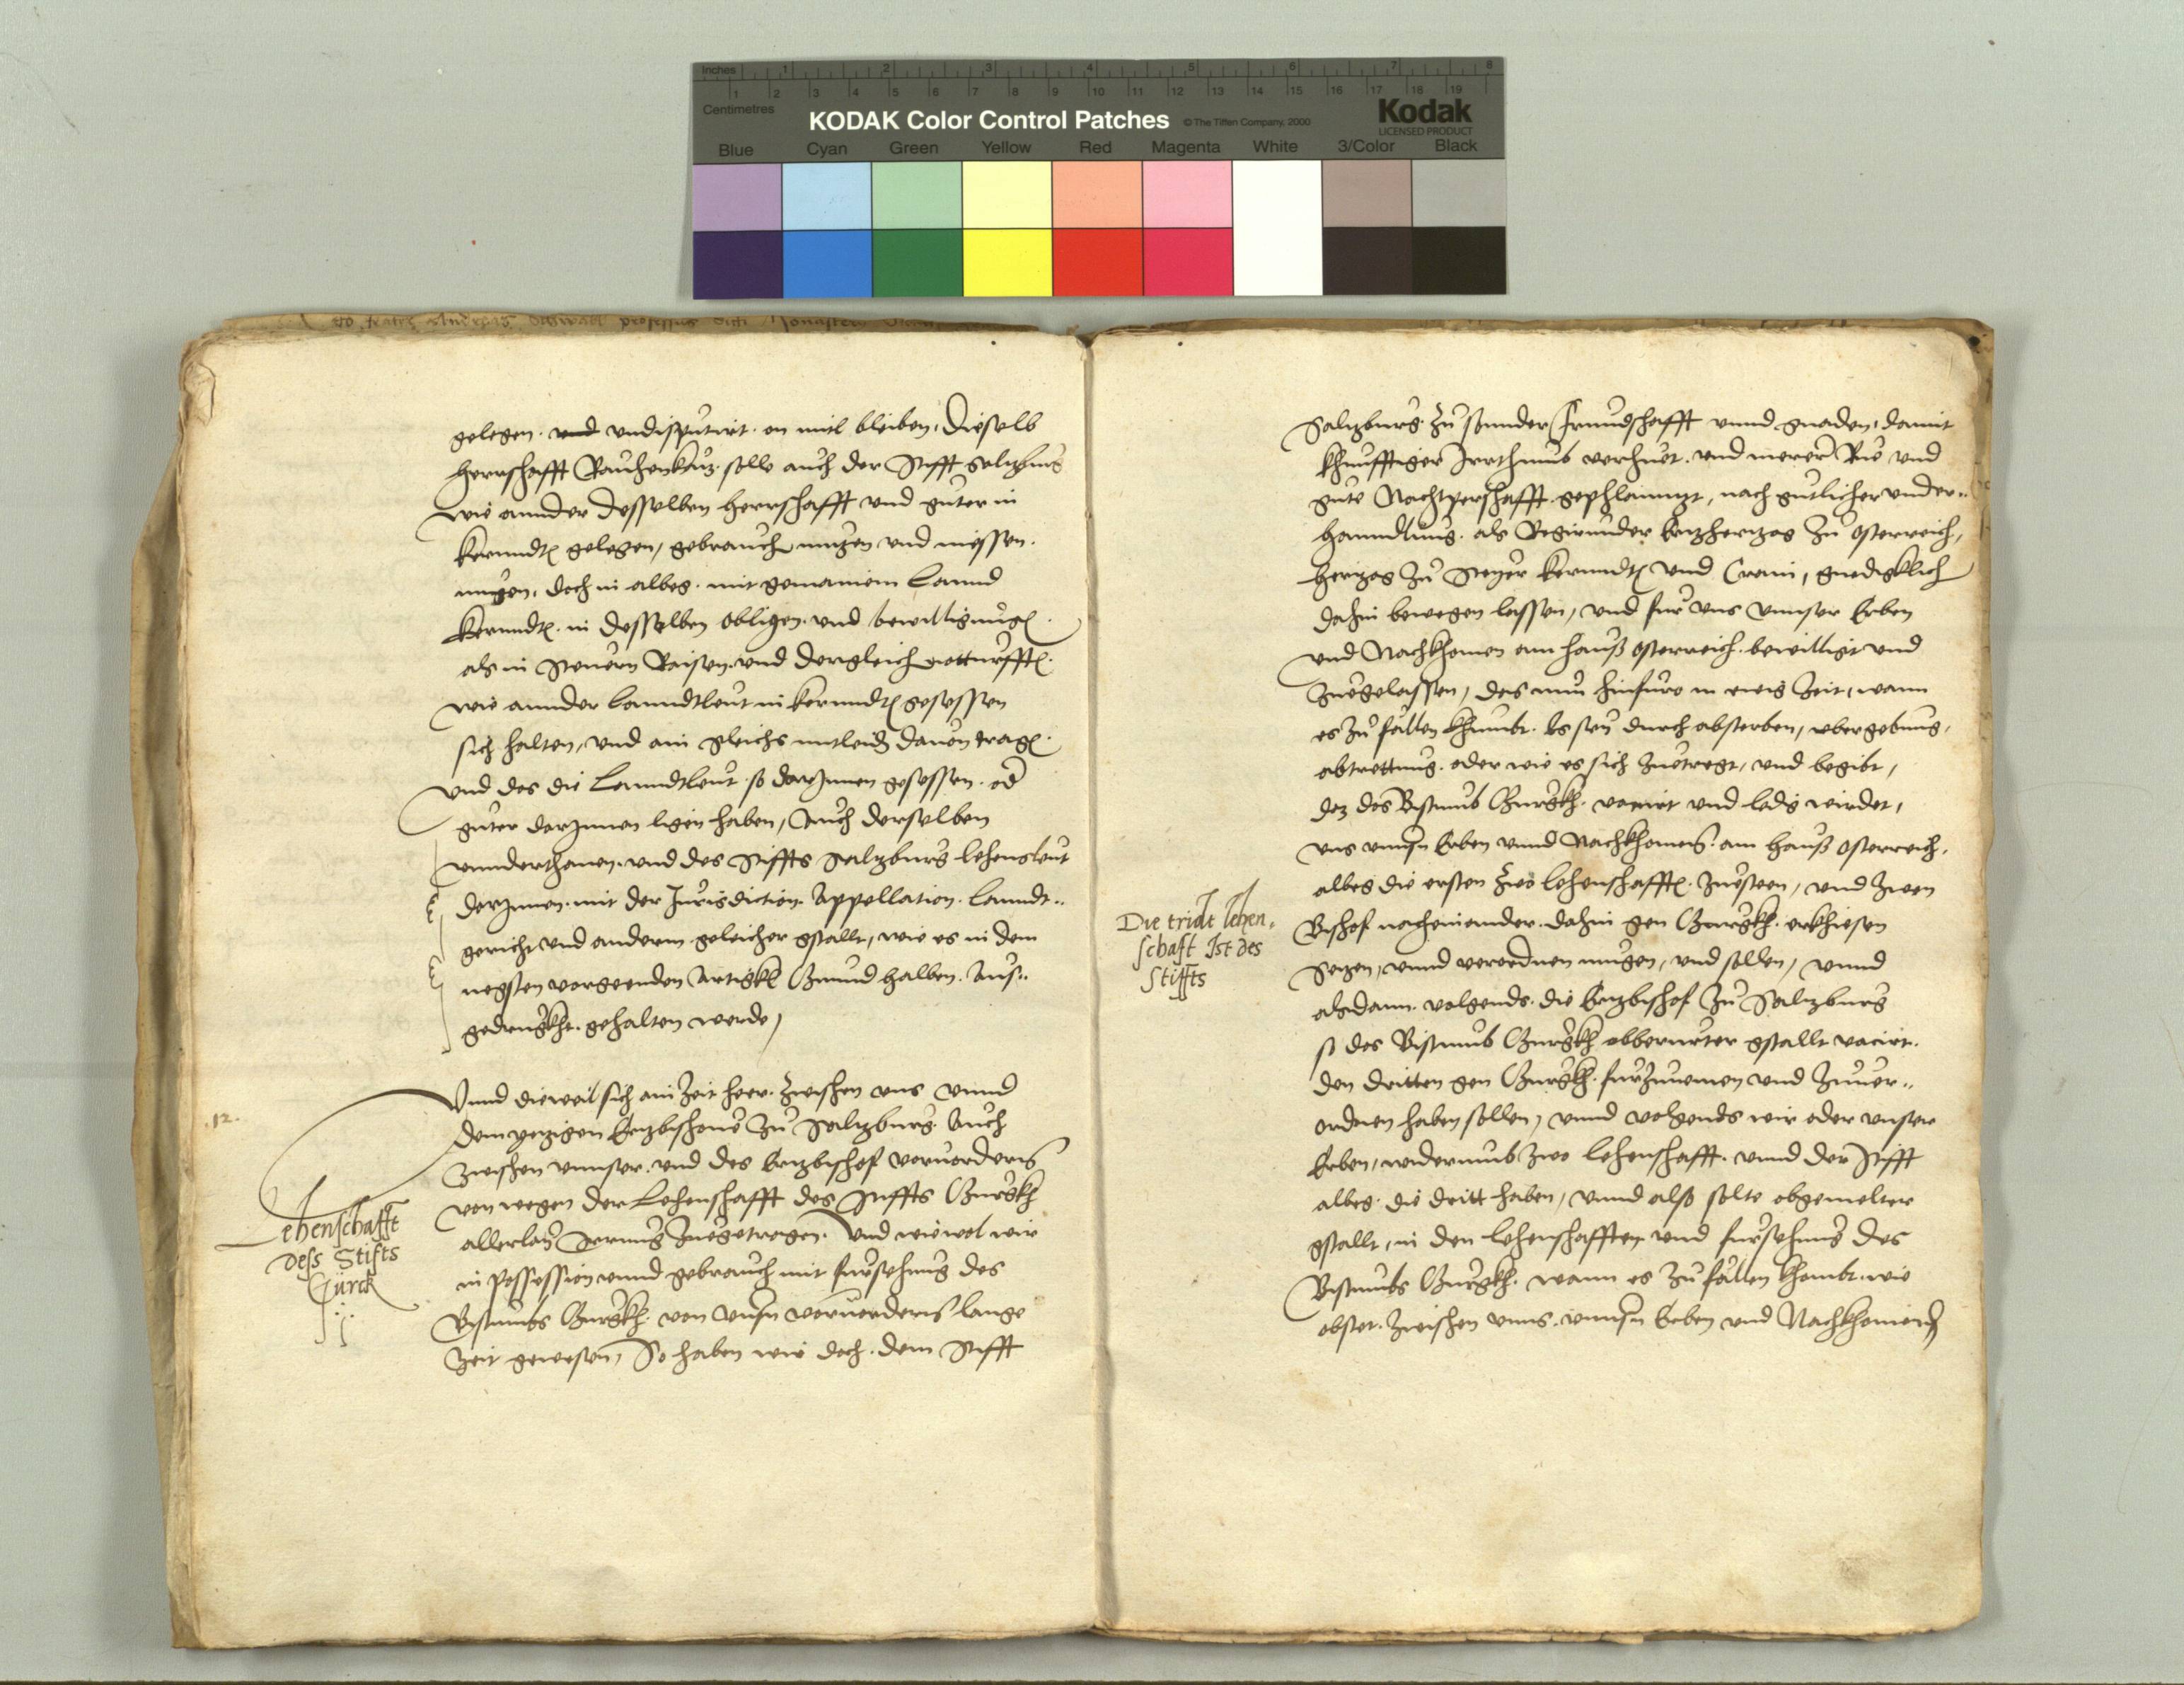 Inches 1 2 3 4 5 6 7 8
Centimetres 1 2 3 4 5 6 7 8 9 10 11 12 13 14 15 16 17 18 19
KODAK Color Control Patches © The Tiffen Company, 2000 Kodak
LICENSED PRODUCT
Blue Cyan Green Yellow Red Magenta White 3/Color Black
gelegen. und undisputirt. on mitl bleiben, Dieselb
herrschafft Rauhenkatz. solle auch der Stifft Saltzburg
wie annder desselben herrschafft und guter in
kernndtn gelegen, gebrauchn nutzen und niessen.
mugen, doch in albeg. mit gemainem Lannd
kernndtn. in desselben obligen. und bewilligungn.
als in Steuern Raisen. und dergleichn notturfftn.
wie annder lanndtleut in kernndtn gesessen
sich halten, und ain gleichs mitleidn davon tragn.
Und das die Lanndtleut. so darJnnen gesessen. od
guter darJnnen ligen haben, Auch derselben
unnderthanen. und des Stiffts Saltzburg lehensleut
darJnnen. mit der Jurisdiction. Appellation. Lanndt..
gericht und anderm geleicher gstallt, wie es in dem
negsten vorgeenden Artigkl Gmund halben. Aus..
gedrugkht. gehalten werde,
.12.
Lehenschafft
dess Stifts
Gürck
Unnd dieweil sich ain Zeit heer. Zwischen uns unnd
dem yetzigen Ertzbischove Zu Saltzburg. Auch
Zwischen unnser. und des Ertzbischof vorvordern
von wegen der Lehenschafft des Stiffts Gurgkh
allerlay Jrrung Zuegetragen. Und wiewol wir
in possession unnd gebrauch mit fursehung des
Bistumbs Gurgkh. von unsern vorvordern lange
Zeit gewesen, So haben wir doch. dem Stifft
Saltzburg. Zu sonnder Freundschafft unnd gnaden, damit
khunfftiger Jrrthumb verhuet. und merer Rue und
gute Nachtperschafft gephlanntzt, nach gutlicher under..
hanndlung. als Regierunder Ertzhertzog Zu Osterreich,
hertzog Zu Steyer kernndtn und Crain, gnedigklich
dahin bewegen lassen, und fur uns unnser Erben
und Nachkhomen am hauß Osterreich. bewilligt und
Zuegelassen, das nun hinfuro in ewig Zeit, wann
es Zu fällen khumbt. Es sey durch absterben, ubergebung,
abtrettung. oder wie es sich Zuetregt, und begibt,
daz das Bistumb Gurgkh. vaciert und ledig wirdet,
uns unnsern Erben unnd Nachkhomen. am hauß Osterreich.
albeg die ersten Zwo lehenschafftn. Zuesteen, und Zwen
Bischof nacheinander. dahin gen Gurgkh. erkhiesen
Setzen, unnd verordnen mugen, und sollen, unnd
alsdann. volgends. die Ertzbischof Zu Saltzburg
so das Bistumb Gurgkh obberurter gstallt vacirt.
den dritten gen Gurgkh. furZunemen und Zuver..
ordnen haben sollen, unnd volgends wir oder unser
Erben, widerumb Zwo lehenschafft. unnd der Stifft
albeg. die dritt haben, unnd also solle obgemelter
gstallt, in den lehenschafften und fursehung des
Bistumbs Gurgkh. wann es Zu fällen khombt. wie
obstet. Zwischen unns. unnsern Erben und Nachkhomen
Die tridt lehen=
schaft Ist des
Stiffts